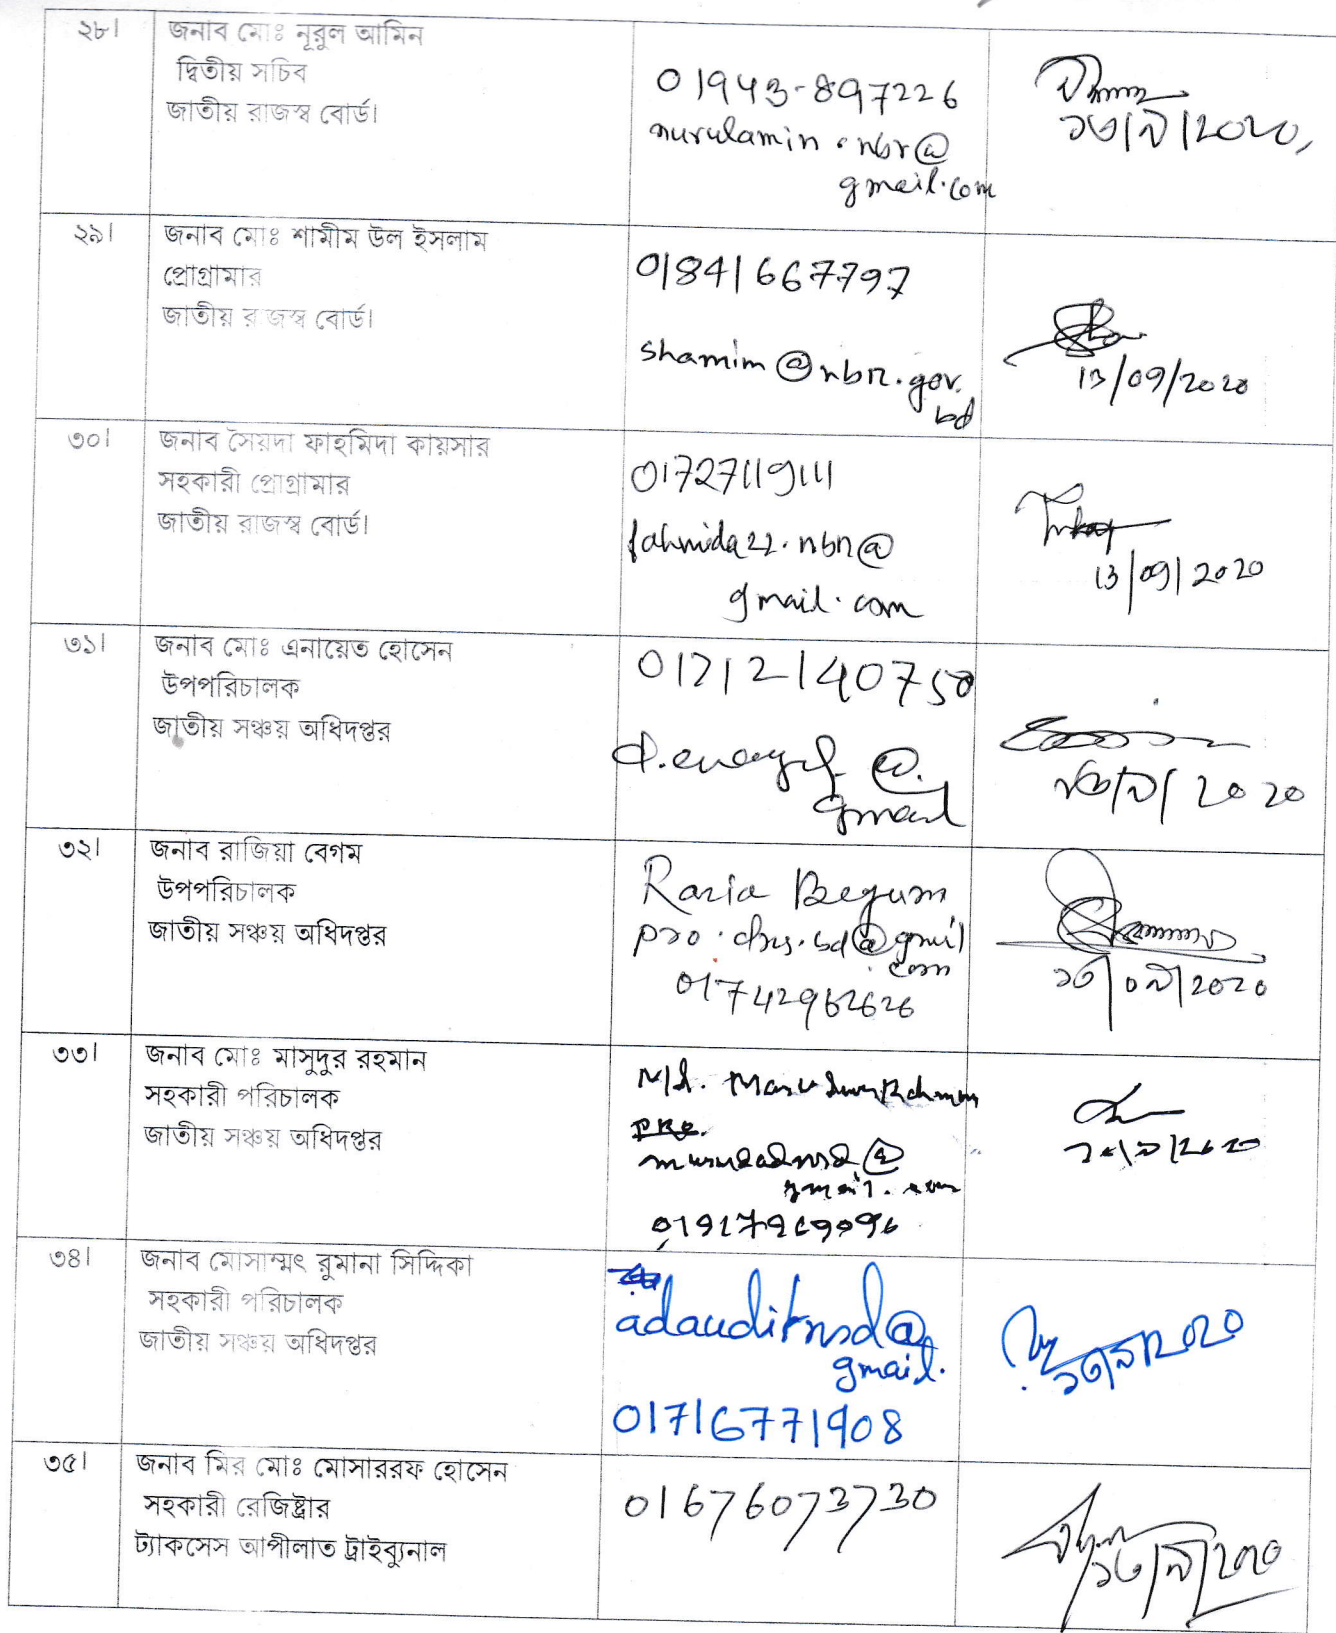 ২৮।
জনাব মোঃ নূরুল আমিন
দ্বিতীয় সচিব
জাতীয় রাজস্ব বোর্ড।
01943-897226
nurulamin.nbr@
gmail.com
১৩/৯/2020,
২৯।
জনাব মোঃ শামীম উল ইসলাম
প্রোগ্রামার
জাতীয় রাজস্ব বোর্ড।
01841667797
shamim@nbr.gov.
bd
13/09/2020
৩০।
জনাব সৈয়দা ফাহমিদা কায়সার
সহকারী প্রোগ্রামার
জাতীয় রাজস্ব বোর্ড।
01727119111
fahmida22.nbr@
gmail.com
13/09/2020
৩১।
জনাব মোঃ এনায়েত হোসেন
উপপরিচালক
জাতীয় সঞ্চয় অধিদপ্তর
01712140750
@
gmail
2020
৩২।
জনাব রাজিয়া বেগম
উপপরিচালক
জাতীয় সঞ্চয় অধিদপ্তর
Razia Begum
pro.dns.bd@gmail
.com
01742962626
১৩/০৯/2020
৩৩।
জনাব মোঃ মাসুদুর রহমান
সহকারী পরিচালক
জাতীয় সঞ্চয় অধিদপ্তর
Md. Masudur Rahman
gmail.com
৩৪।
জনাব মোসাম্মৎ রুমানা সিদ্দিকা
সহকারী পরিচালক
জাতীয় সঞ্চয় অধিদপ্তর
adauditnsd@
gmail.
01716771908
১৩/৯/2020
৩৫।
জনাব মির মোঃ মোসাররফ হোসেন
সহকারী রেজিষ্ট্রার
ট্যাকসেস আপীলাত ট্রাইব্যুনাল
01676073730
১৩/৯/2020